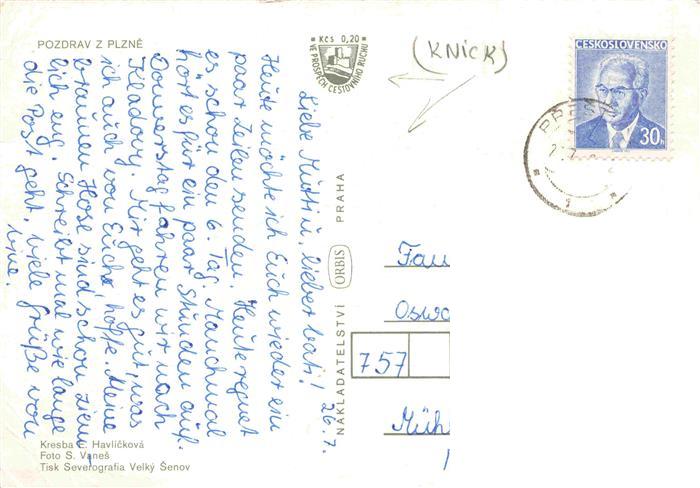 POZDRAV Z PLZNĚ
Kčs 0,20
VE PROSPĚCH CESTOVNÍHO RUCHU
(KNICK)
ČESKOSLOVENSKO
30h
Liebe Mutti u. lieber Vati! 26.7.
Heute möchte ich Euch wieder ein
paar Zeilen senden. Heute regnet
es schon den 6. Tag. Manchmal
hört es für ein paar Stunden auf.
Donnerstag fahren wir nach
Kladovy. Mir geht es gut, was
ich auch von Euch hoffe. Meine
braunen Hose sind schon ziem-
lich eng. Schreibt mal wie lange
die Post geht. Viele Grüße von
NAKLADATELSTVÍ ORBIS PRAHA
Fam
Oswa
757
Mühl
Kresba E. Havlíčková
Foto S. Vaneš
Tisk Severografia Velký Šenov